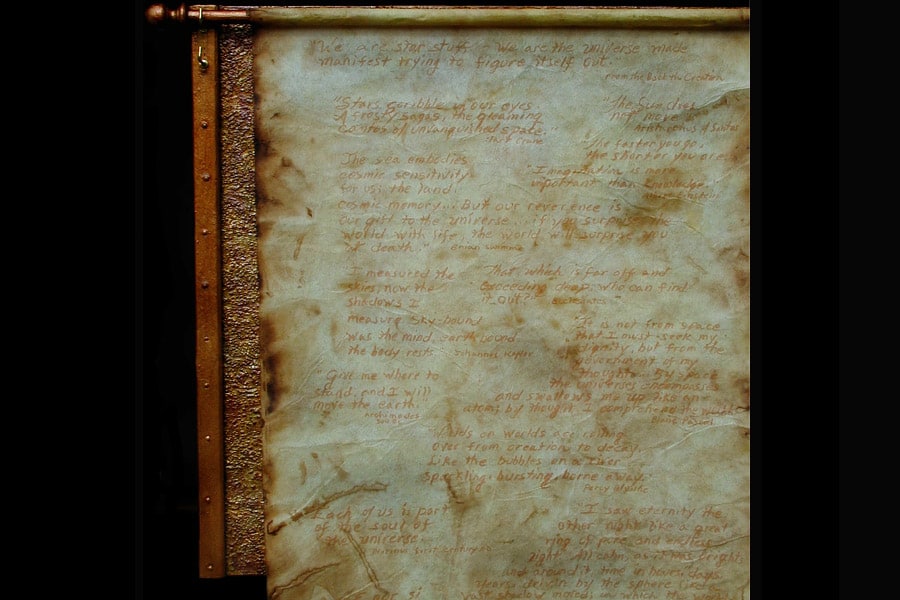 "We are star stuff - we are the universe made
manifest trying to figure itself out.
From the Book the Creation
"Stars scribble in our eyes
A frosty sagas, the gleaming
cantos of unvanquished space."
Hart Crane
"The Sun does
not move."
The faster you go,
the shorter you are.
"Imagination is more
important than knowledge
The sea embodies
cosmic sensitivity
for us; the land,
cosmic memory... But our reverence is
our gift to the universe... if you surprise the
world with life, the world will surprise you
at death."
I measured the
skies, now the
shadows I
measure Sky-bound
was the mind, earth bound
the body rests
Johannes Kepler
"That which is far off and
exceeding deep, who can find
it out?"
"It is not from space
that I must seek my
dignity, but from the
government of my
thoughts. By space
the universe encompasses
and swallows me up like an
atom; by thought I comprehend the world
Blaise Pascal
"Give me where to
stand, and I will
move the earth.
Archimedes
Worlds on worlds are rolling
over from creation to decay,
Like the bubbles on a river
sparkling, bursting, borne away.
Each of us is part
of the soul of
the universe.
I saw eternity the
other night like a great
ring of pure and endless
light, All calm, as it was bright;
and around it time in hours, days
years, driven by the spheres